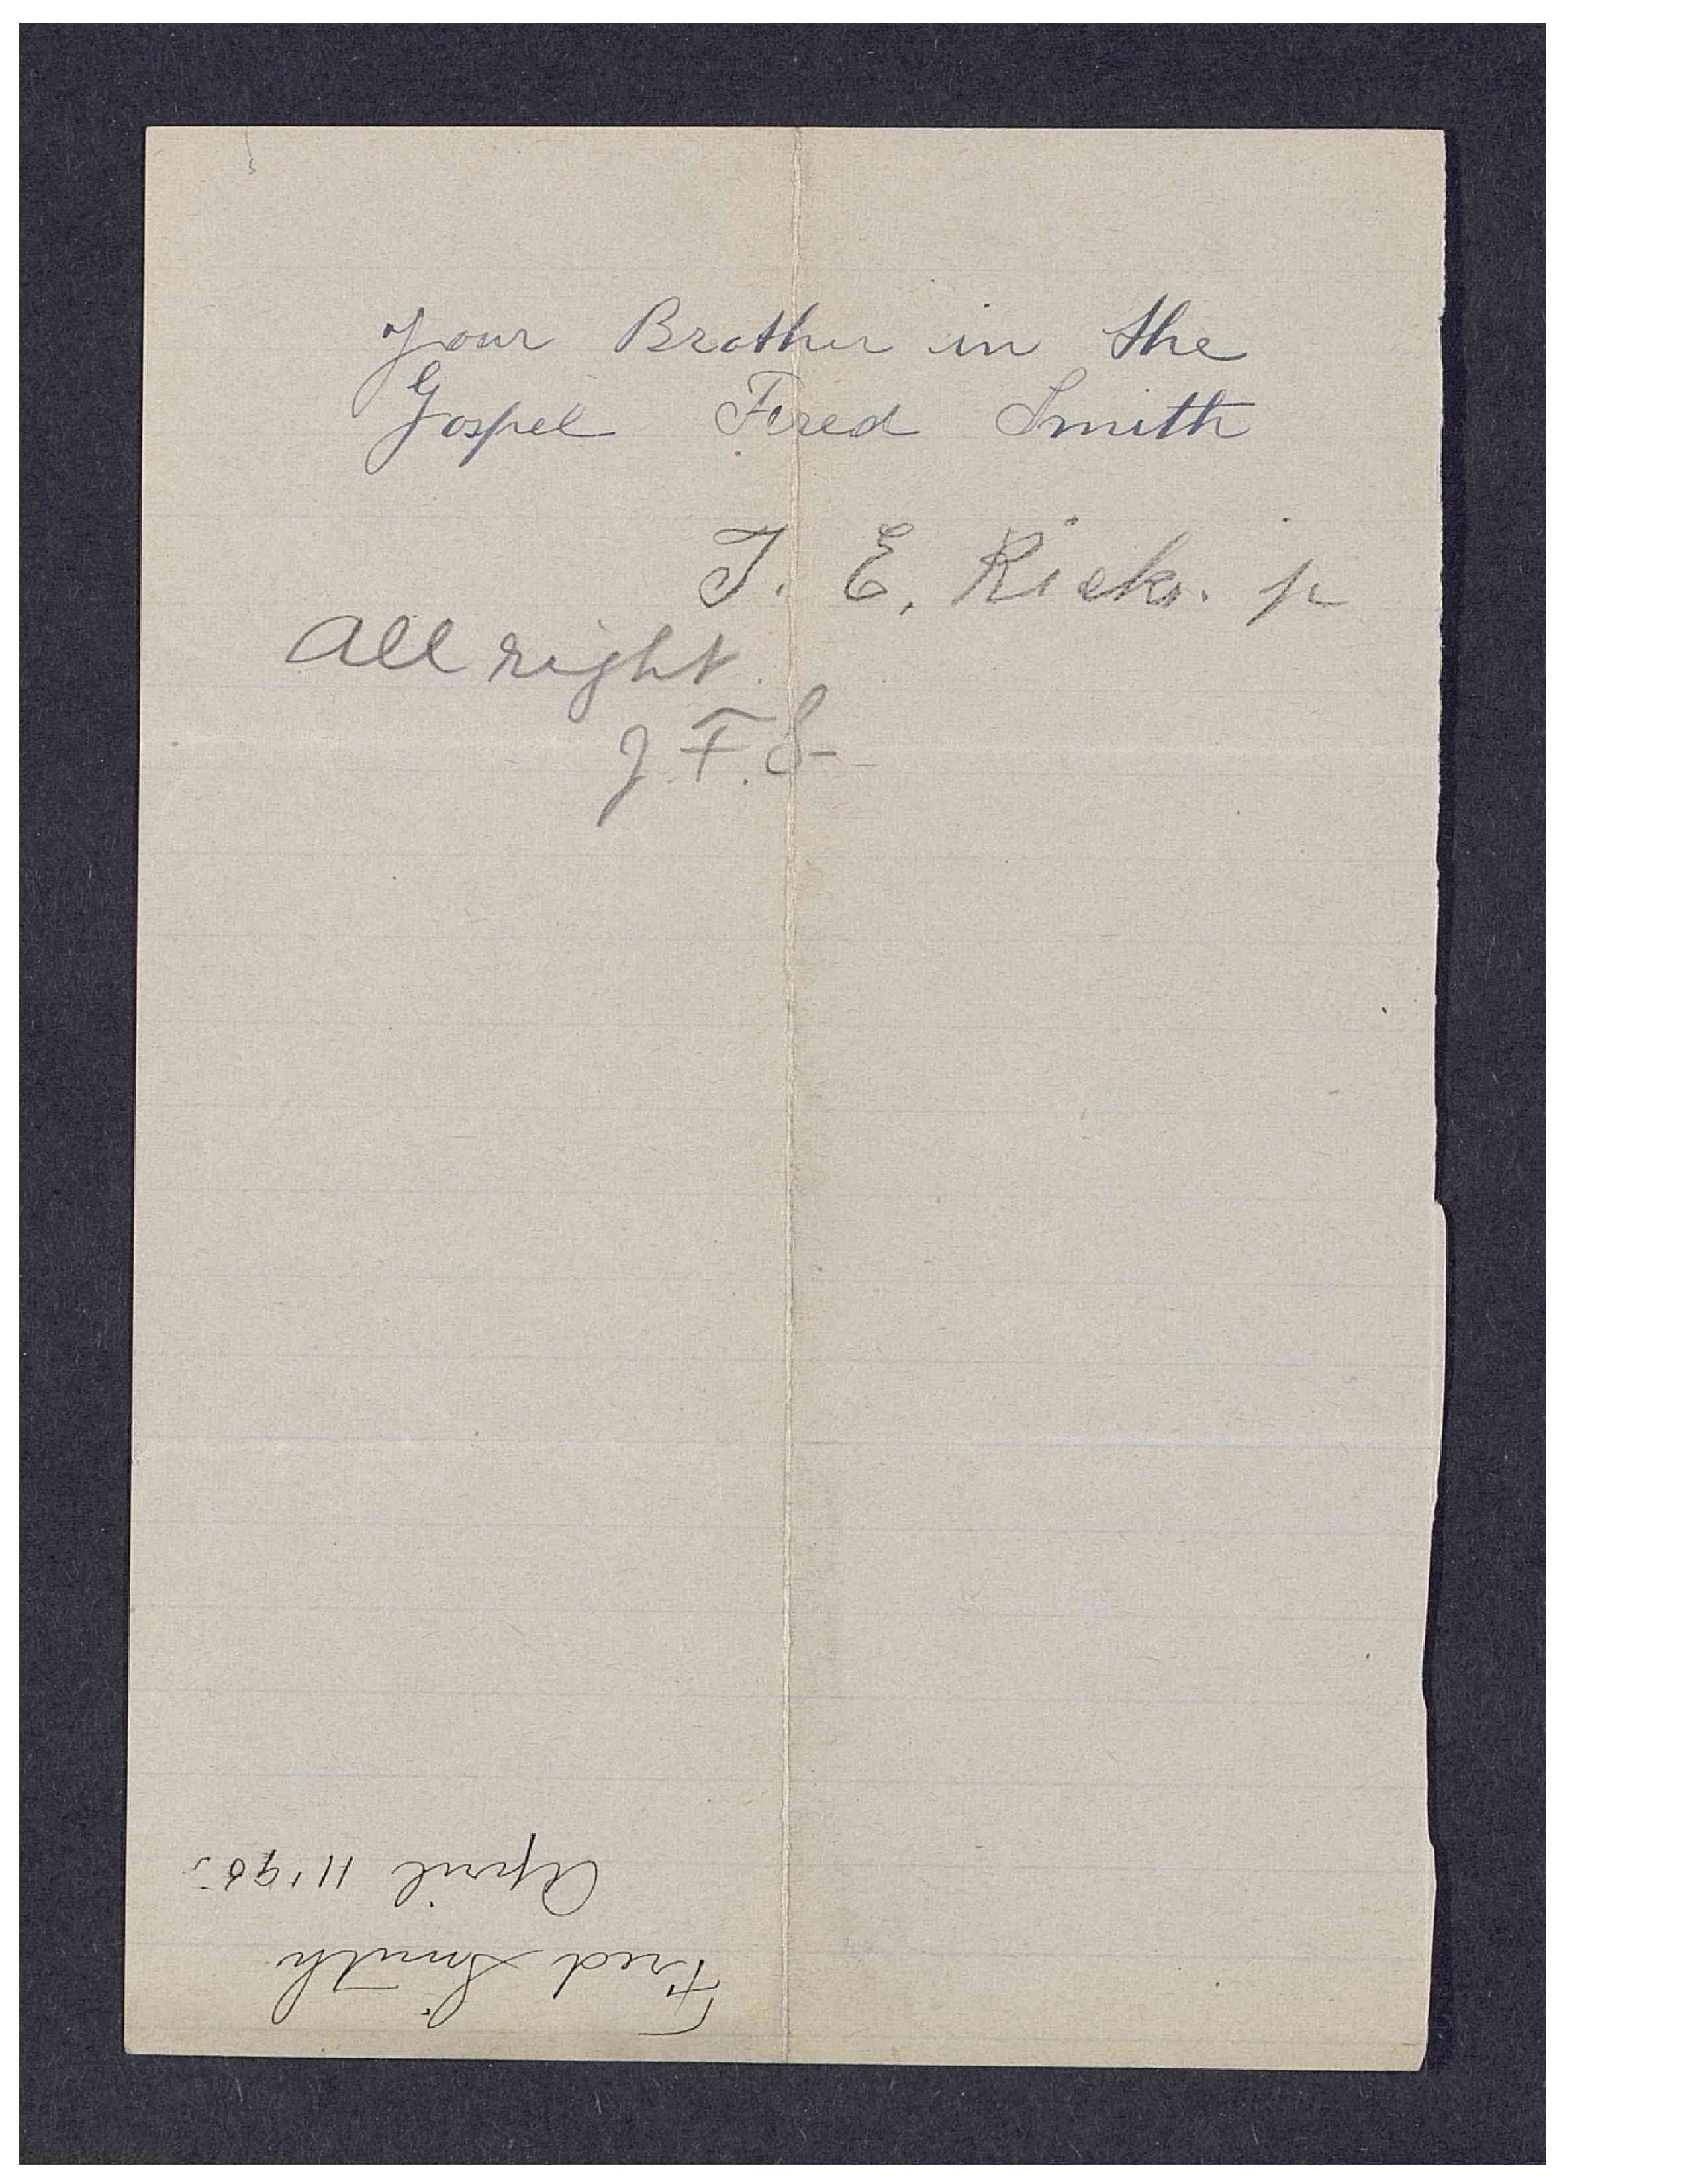 your Brother in the
Gospel Fred Smith
T. E. Ricks. jr
All right.
J. F. S.
Fred Smith
April 11 '90.